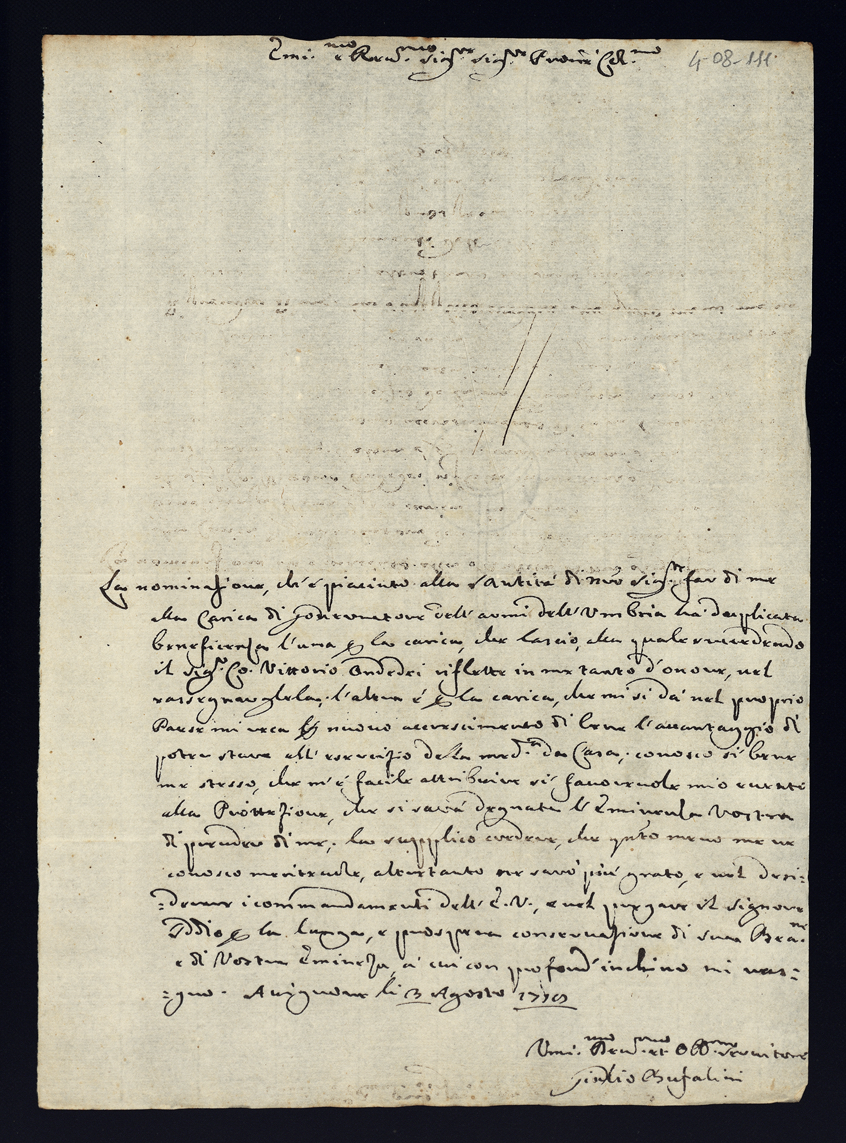 Emi.mo e Rev.mo Sig.r Sig.r Prone Col.mo
4-08-111
La nominazione, ch'è piaciuto alla Santità di nro Sig.re far di me
alla Carica di Governatore dell'armi dell'Umbria ha duplicata
beneficenza l'una p la carica, che lascio, alla quale
il Sig.r Co: Vittorio riflette in me tanto d'onore, nel
rassegnargliela; l'altra è p la carica, che mi si dà nel proprio
Paese mi reca p nuovo accrescimento di bene l'avantaggio di
poter stare all'esercizio della med.ma da Casa; conosco sì bene
me stesso, che m'è facile attribuire sì favorevole mio
alla Prottezione, che si sarà degnata l'Eminenza Vostra
di prender di me; la supplico credere, che q̃nto meno me ne
conosco meritevole, altretanto ne sarò più grato, e nel desi=
=derare i commandamenti dell'E.V., e nel pregare il Signore
Iddio p la lunga, e prospera conservazione di sua Bea.ne
e di Vostra Eminenza, à cui con profond'inchino mi ras=
=gno. Avignone li 3 Agosto
Umi.mo Dev.mo et Obb.mo Servitore
Giulio Bufalini